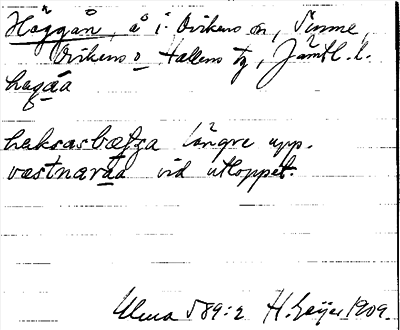 Häggån, å i Ovikens sn, Sunne,
Ovikens o Hallens tg, Jämtl. l.
hagåa
haksasbætza längre upp.
væstnaråa vid utloppet.
Ulma 589:2 H. Geijer 1909.